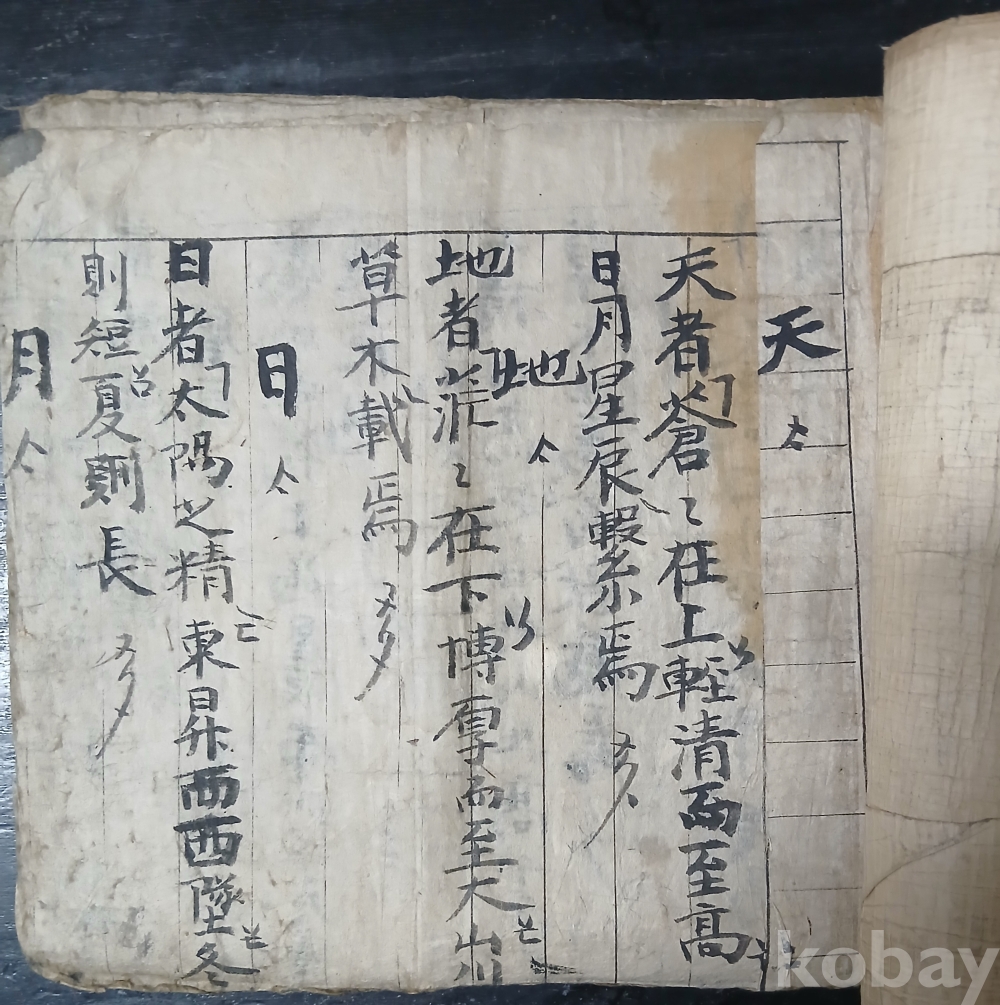 天
天者蒼〻在上輕清而至高
日月星辰繫焉
地
地者茫〻在下博厚而至大山川
草木載焉
日
日者太陽之精東昇而西墜冬
則短夏則長
月
kobay